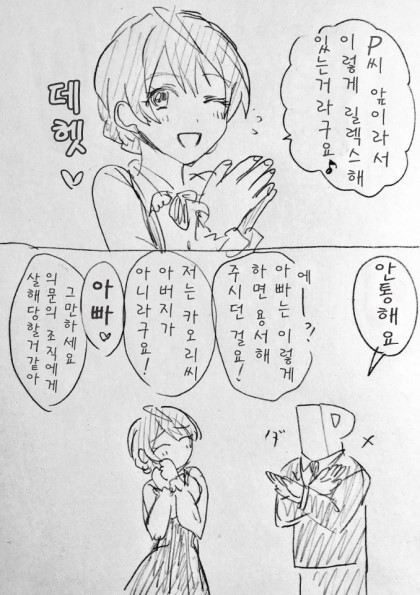 P씨 앞이라서
이렇게 릴렉스해
있는거라구요♪
데헷♡
안통해요
에ー?!
아빠는 이렇게
하면 용서해
주시던걸요!
저는 카오리씨
아버지가
아니라구요!
아빠♥
그만하세요
의문의 조직에게
살해당할거같아
P
×